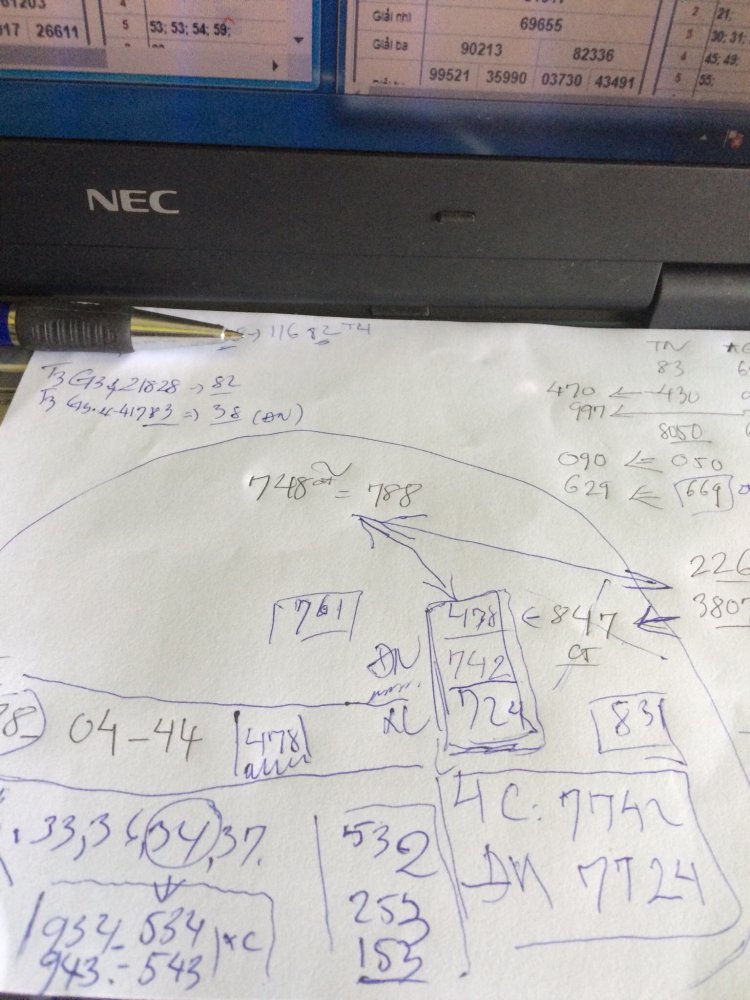 61203
017 26611
5 53; 53; 54; 59;
Giải nhì 69655
Giải ba 90213 82336
99521 35990 03730 43491
2 21;
3 30; 31;
4 45; 49;
5 55;
NEC
11682 T4
T3 G3 21828 → 82
T3 G5.4-41783 ⇒ 38 (ĐN)
TN
83
470 ← 430
997 ←
8050
090 ⇐ 050
629 ⇐ 669
748 = 788
226
3807
761
478 ← 847
CT
ĐN 742
XC 724
831
04-44 478
4C: 7742
ĐN 7724
33, 34, 37.
934- 534 XC
943.- 543
532
253
153